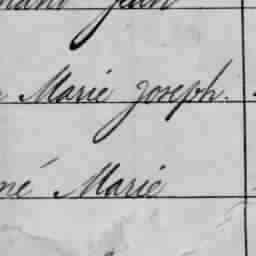 Jean
Marie Joseph.
né Marie